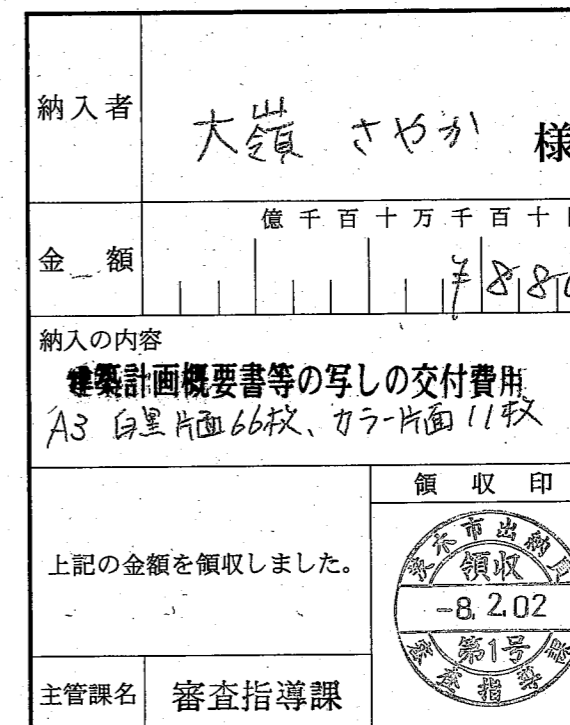 納入者
大嶺 さやか 様
億千百十万千百十
金 額
7880
納入の内容
建築計画概要書等の写しの交付費用
A3 白黒片面66枚、カラー片面11枚
領収印
上記の金額を領収しました。
木市出納員
領収
-8.2.02
第1号
審査指導課
主管課名
審査指導課